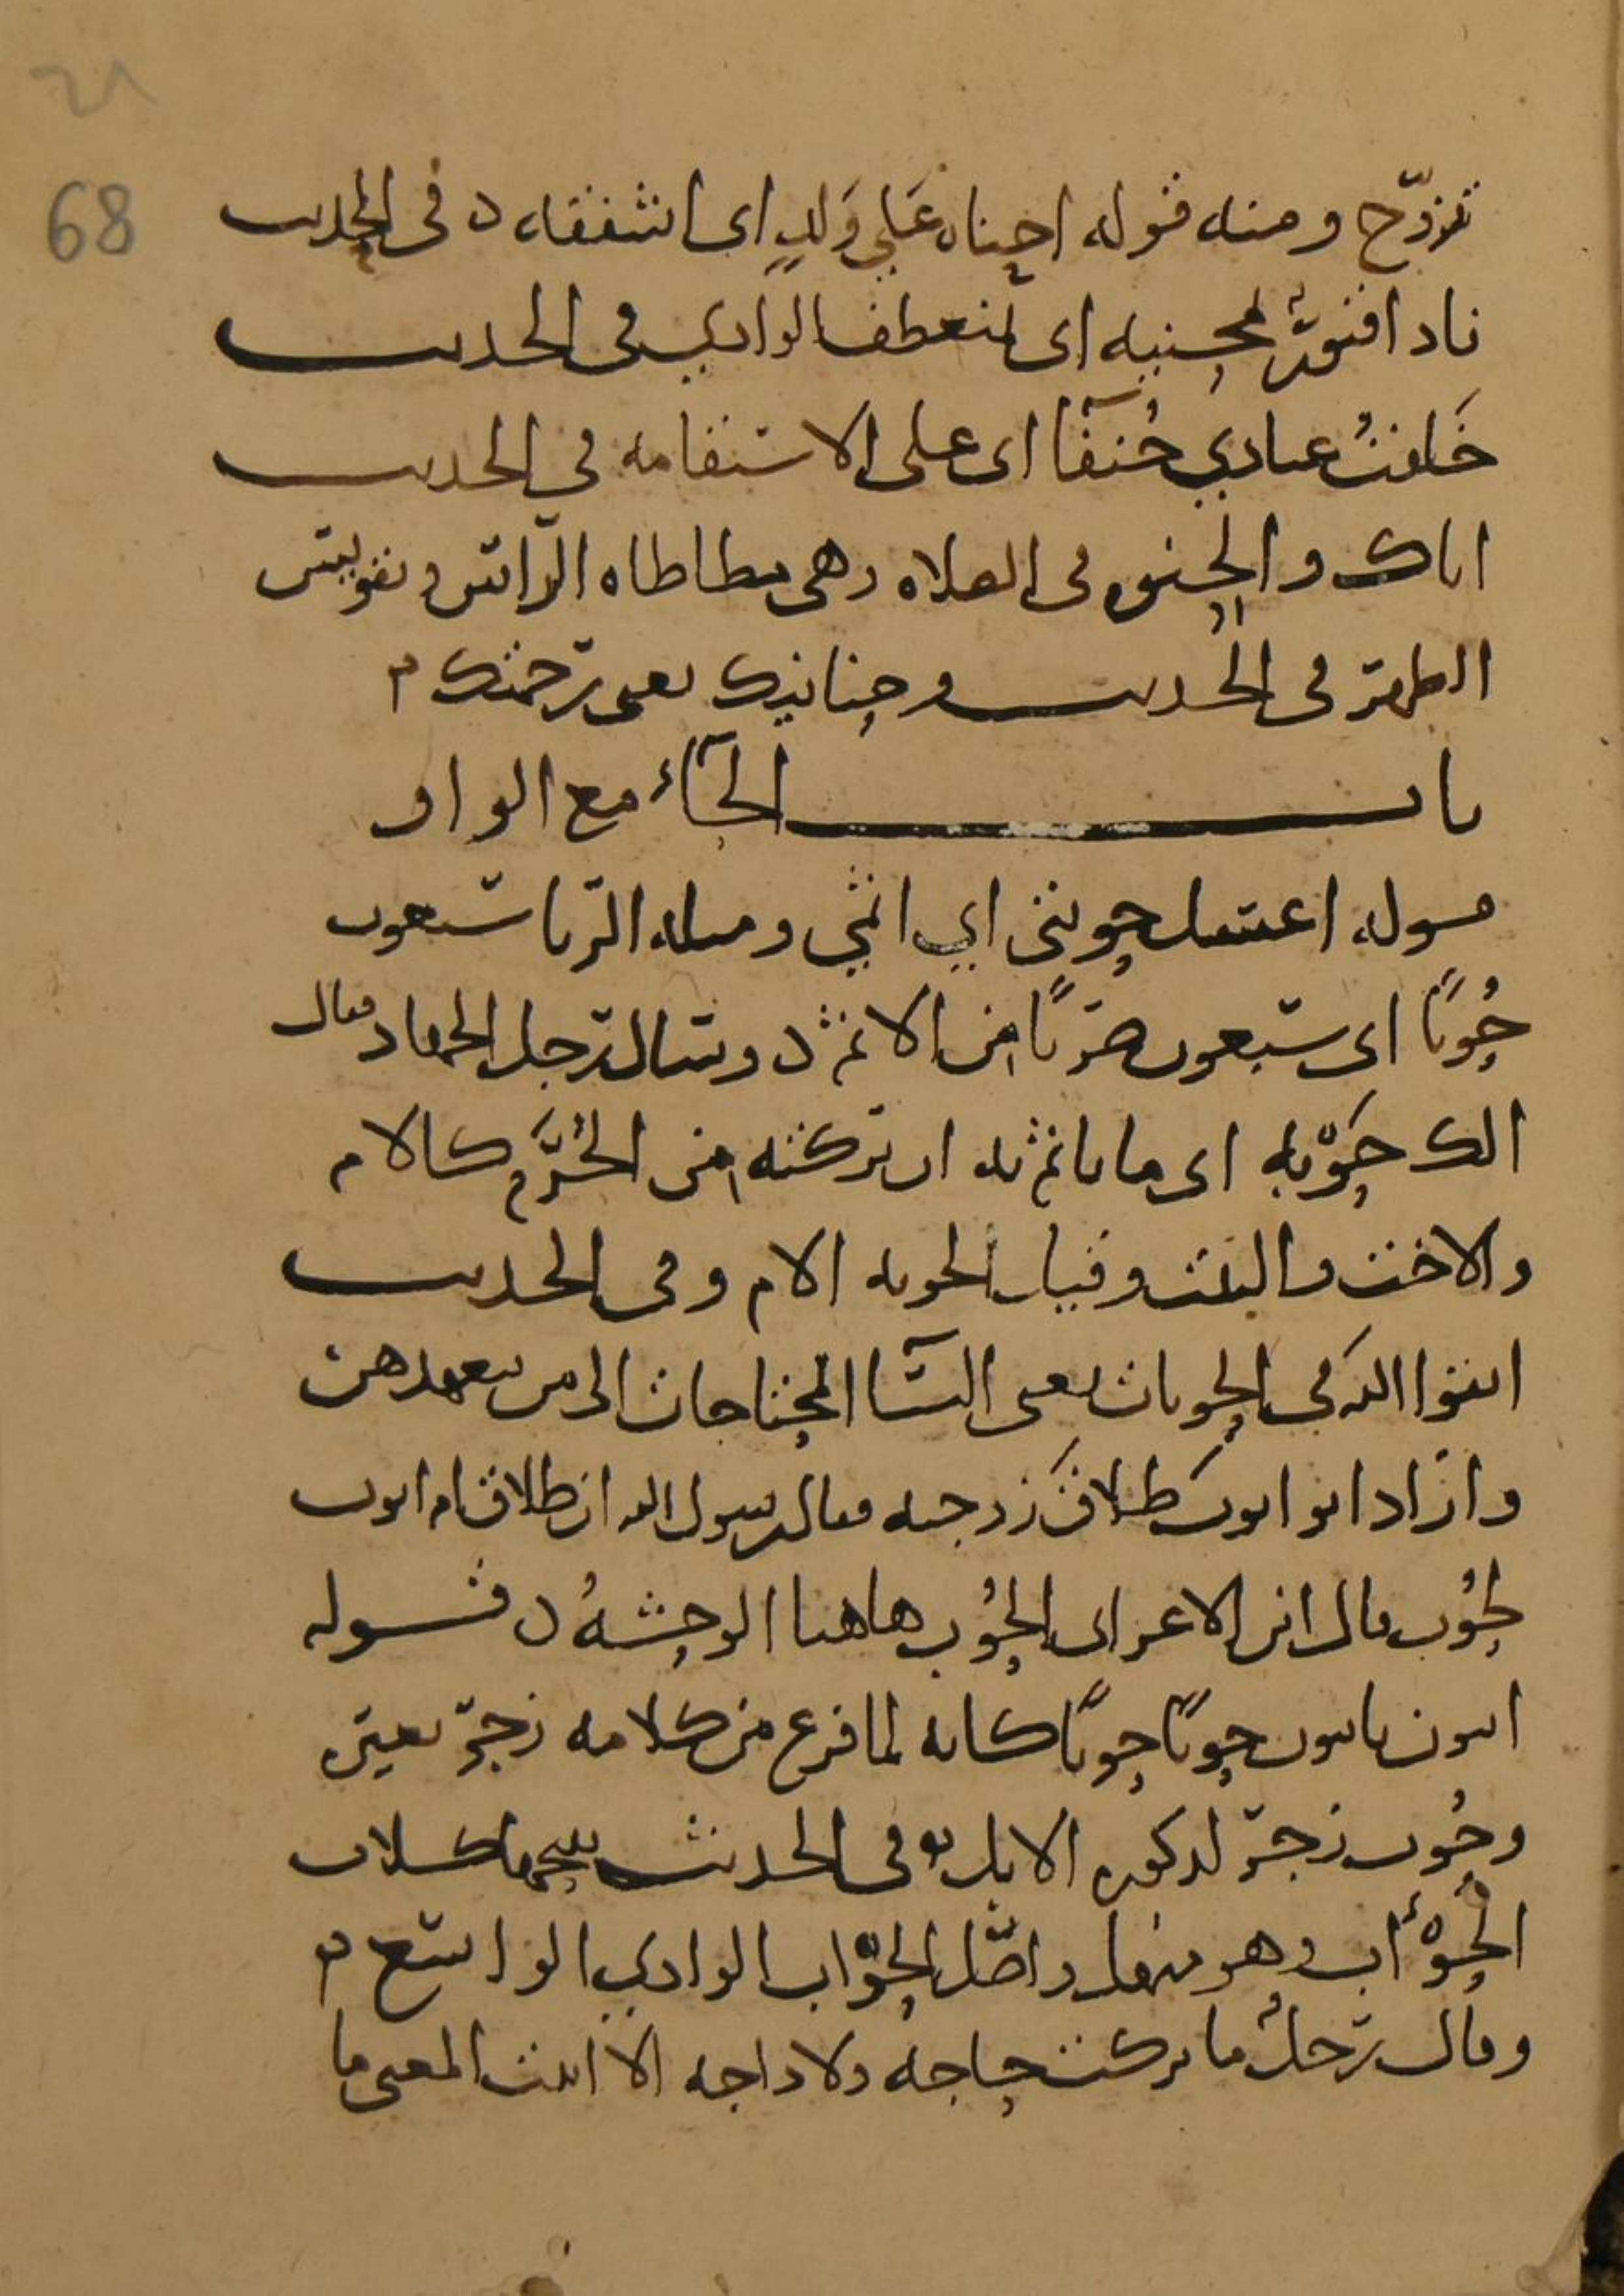 ٦٨
68
تزوج ومنه قوله احناه على ولد اى اشفقه فى الحديث
فاذا قبور بمحنيه اى بمنعطف الوادي فى الحديث
خلقت عبادي حنفآ اى على الاستقامه فى الحديث
اياك والحنوه فى الصلاه وهى مطاطاه الراس وتقويس
الظهر فى الحديث وحنانيك يعنى رحمتك
باب الحآء مع الواو
قوله اغسل حوبتى اي اثمي ومثله الربا سبعون
حُوبًا اى سبعون ضربًا من الاثم وسال رجل الجهاد فقال
الك حَوْبه اى ما ياثم به ان تركته من الحُرَم كالام
والاخت والبنت وقيل الحوبه الام وفى الحديث
اتقوا الله في الحوبات يعنى النسآ المحتاجات الى من يتعهدهن
واراد ابو ايوب طلاق زوجته فقال رسول الله ان طلاق ام ايوب
لحُوب قال ابن الاعرابى الحُوب هاهنا الوحشهُ قوله
ايبون تايبون حوبًا حوبًا كانه لما فرغ من كلامه زجر بعيره
وحُوب زجر لذكوره الابل وفى الحديث ينبحها كلاب
الحَوْءَاب وهو منهل واصل الحوْاب الوادي الواسع
وقال رجلُ ما تركت حاجه ولا داجه الا اتيت المعنى ما